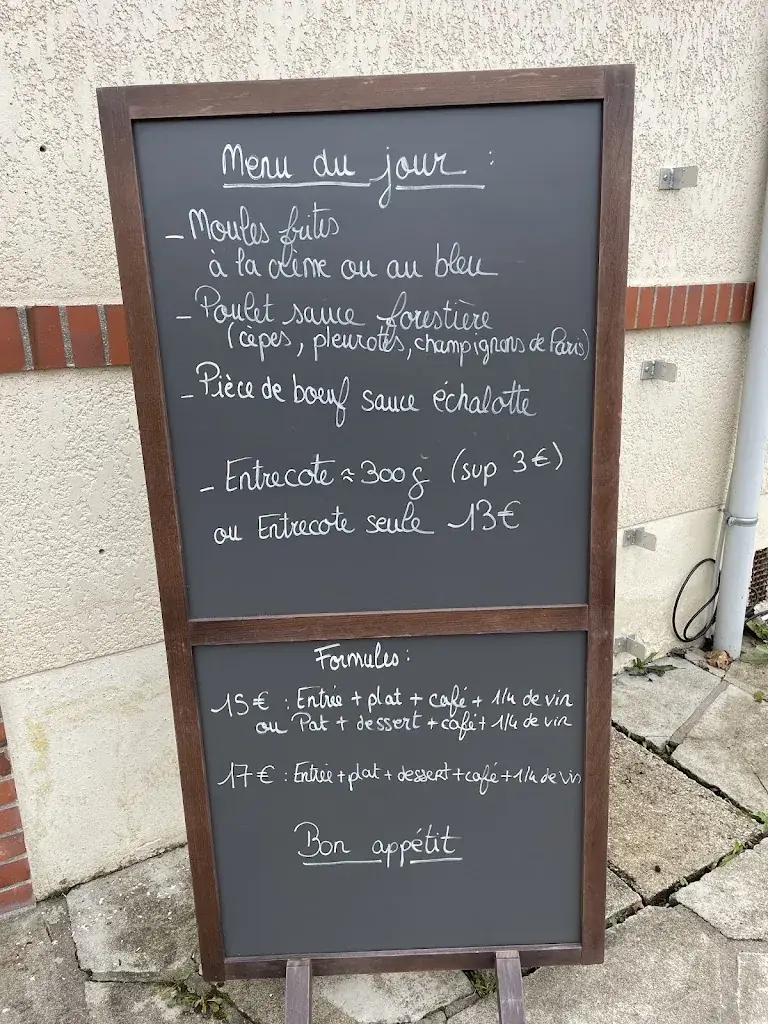 Menu du jour :
- Moules frites
à la crème ou au bleu
- Poulet sauce forestière
(cèpes, pleurotes, champignons de Paris)
- Pièce de boeuf sauce échalotte
- Entrecote ≈ 300g (sup 3€)
ou Entrecote seule 13€
Formules :
15€ : Entrée + plat + café + 1/4 de vin
ou Pat + dessert + café + 1/4 de vin
17€ : Entrée + plat + dessert + café + 1/4 de vin
Bon appétit